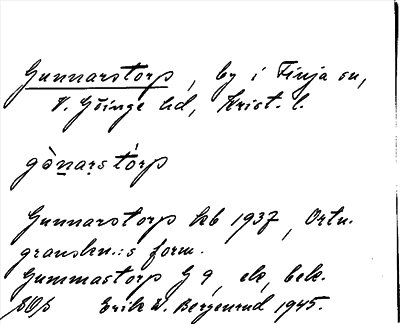 Gunnarstorp, by i Finja sn,
V. Göinge hd, Krist. l.
gònarstórp
Gunnarstorp kb 1937, Ortn.
granskn.:s form.
Gummastorp G 9, ek, bek.
Erik W. Bergenrud 1945.